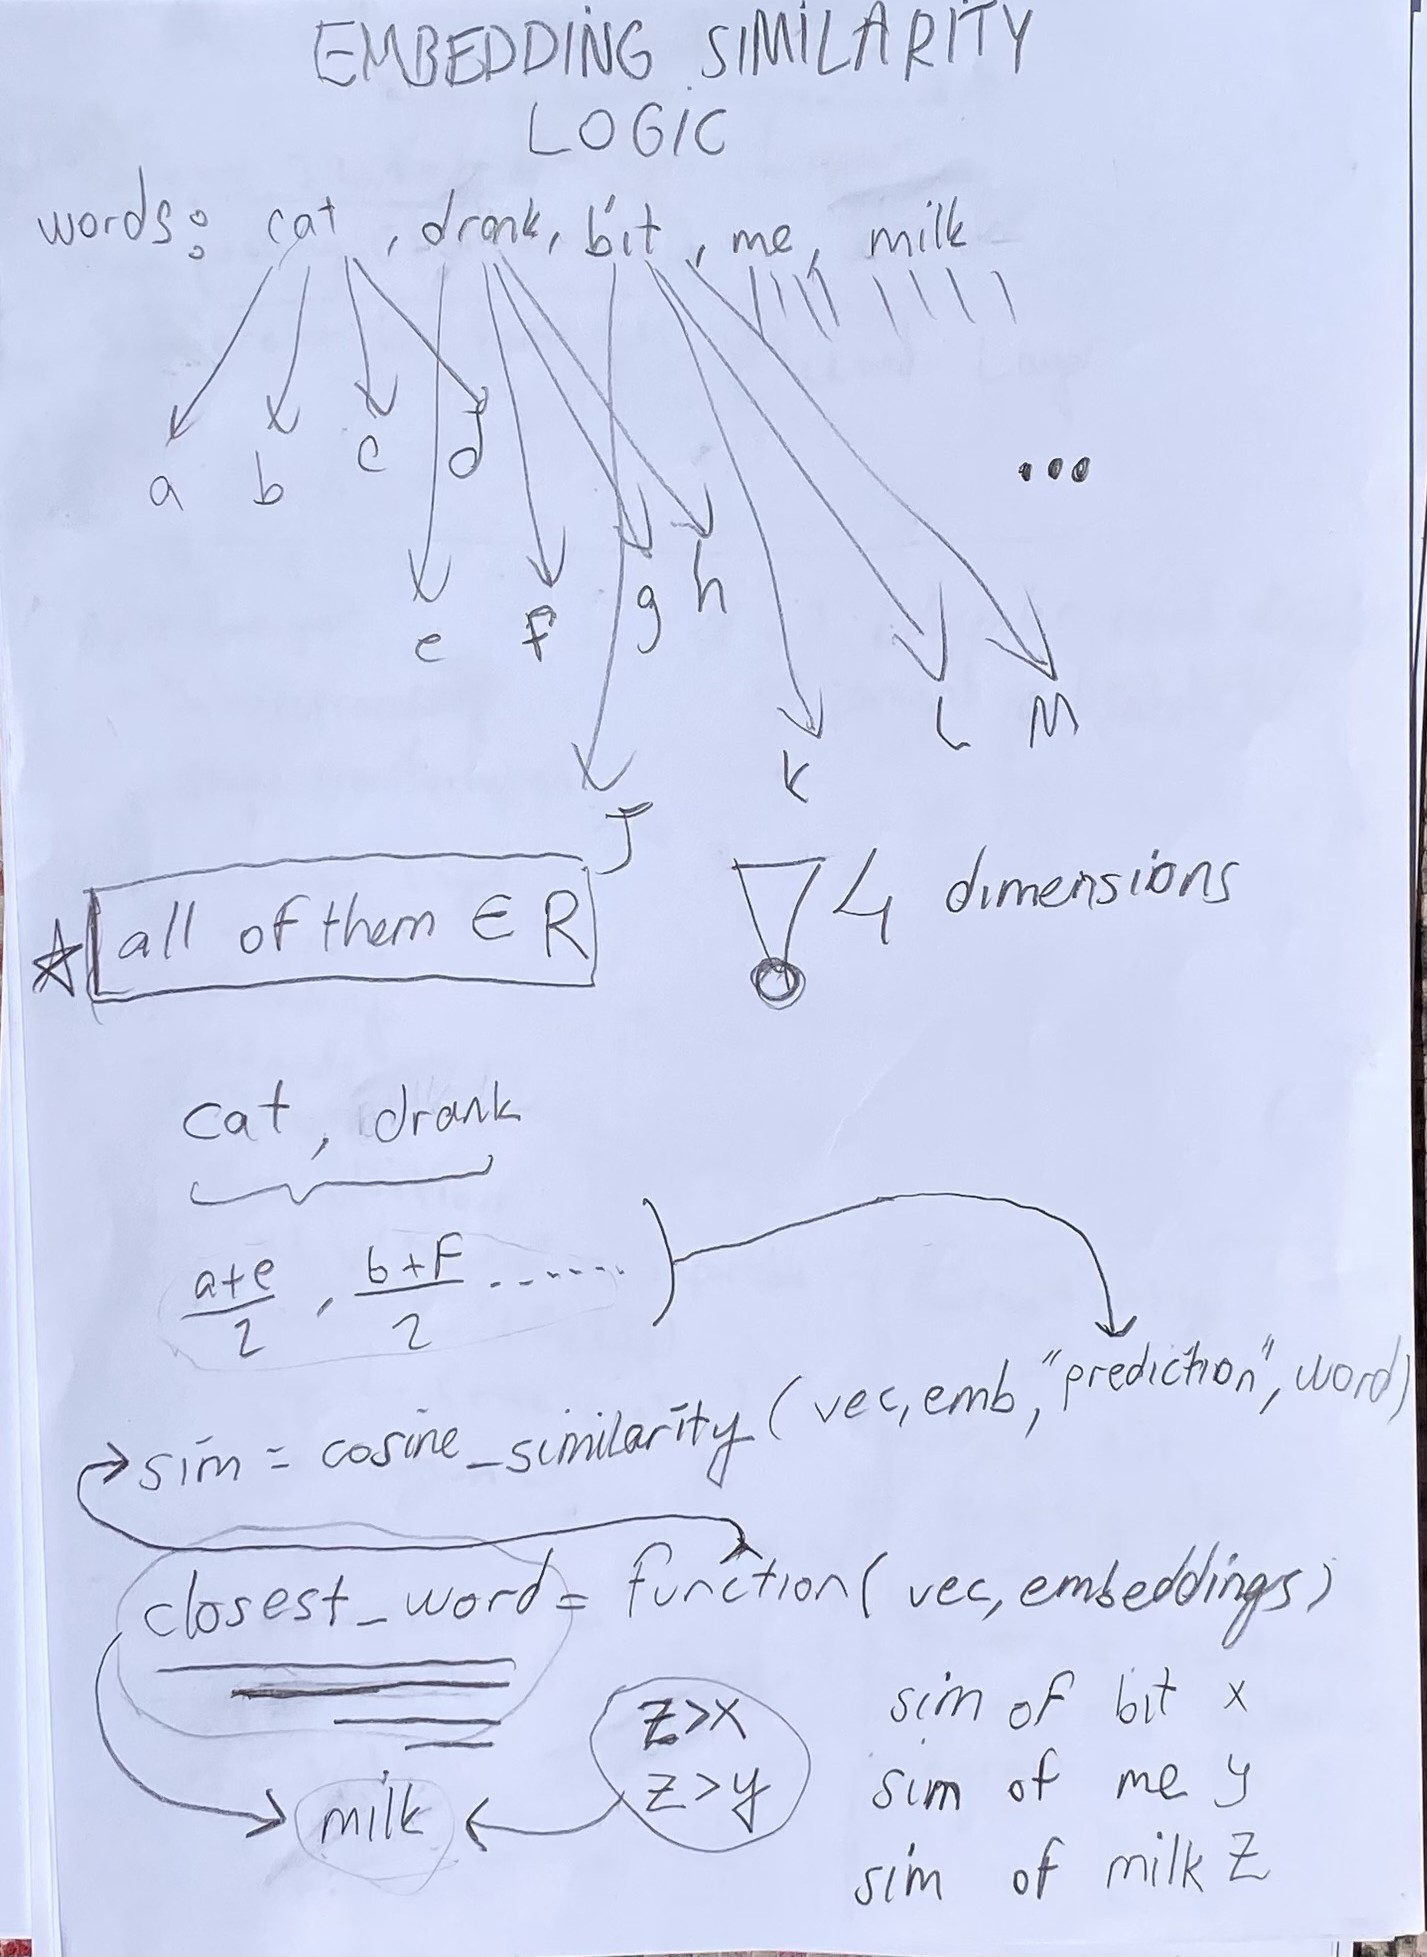 EMBEDDING SIMILARITY
LOGIC
words: cat, drank, bit, me, milk
a b c d
...
e f g h
J K L M
all of them ∈ R
4 dimensions
cat, drank
a+e/2, b+F/2 .......
sim = cosine_similarity(vec, emb, "prediction", word)
closest_word = function(vec, embeddings)
z>x
z>y
sim of bit x
sim of me y
sim of milk z
milk